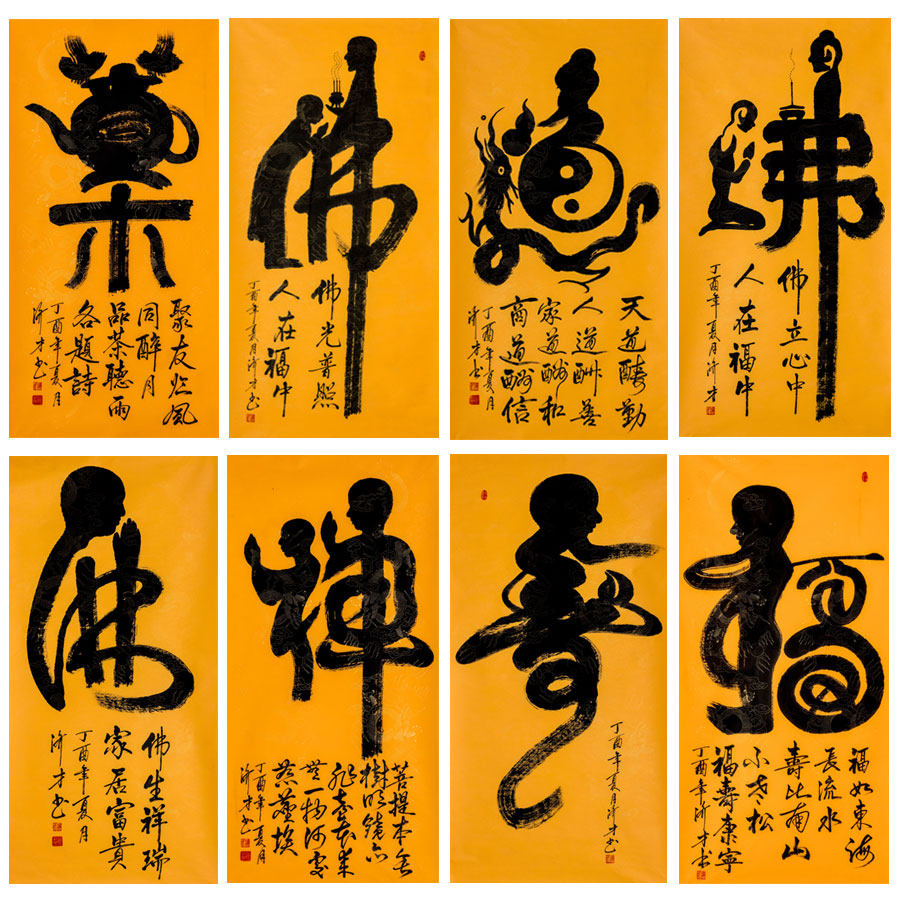 茶
聚友临風
同醉月
品茶聽雨
各題詩
丁酉年夏月
济才书
佛
佛光普照
人在福中
丁酉年夏月济才书
道
天道酬勤
人道酬善
家道酬和
商道酬信
丁酉年夏月
济才书
佛
佛立心中
人在福中
丁酉年夏月济才
佛
佛生祥瑞
家居富貴
丁酉年夏月
济才书
禅
菩提本无
樹明镜亦
非臺本来
无一物何处
惹塵埃
丁酉年夏月
济才书
寿
丁酉年夏月济才书
福
福如東海
長流水
壽比南山
不老松
福壽康寧
丁酉年济才书